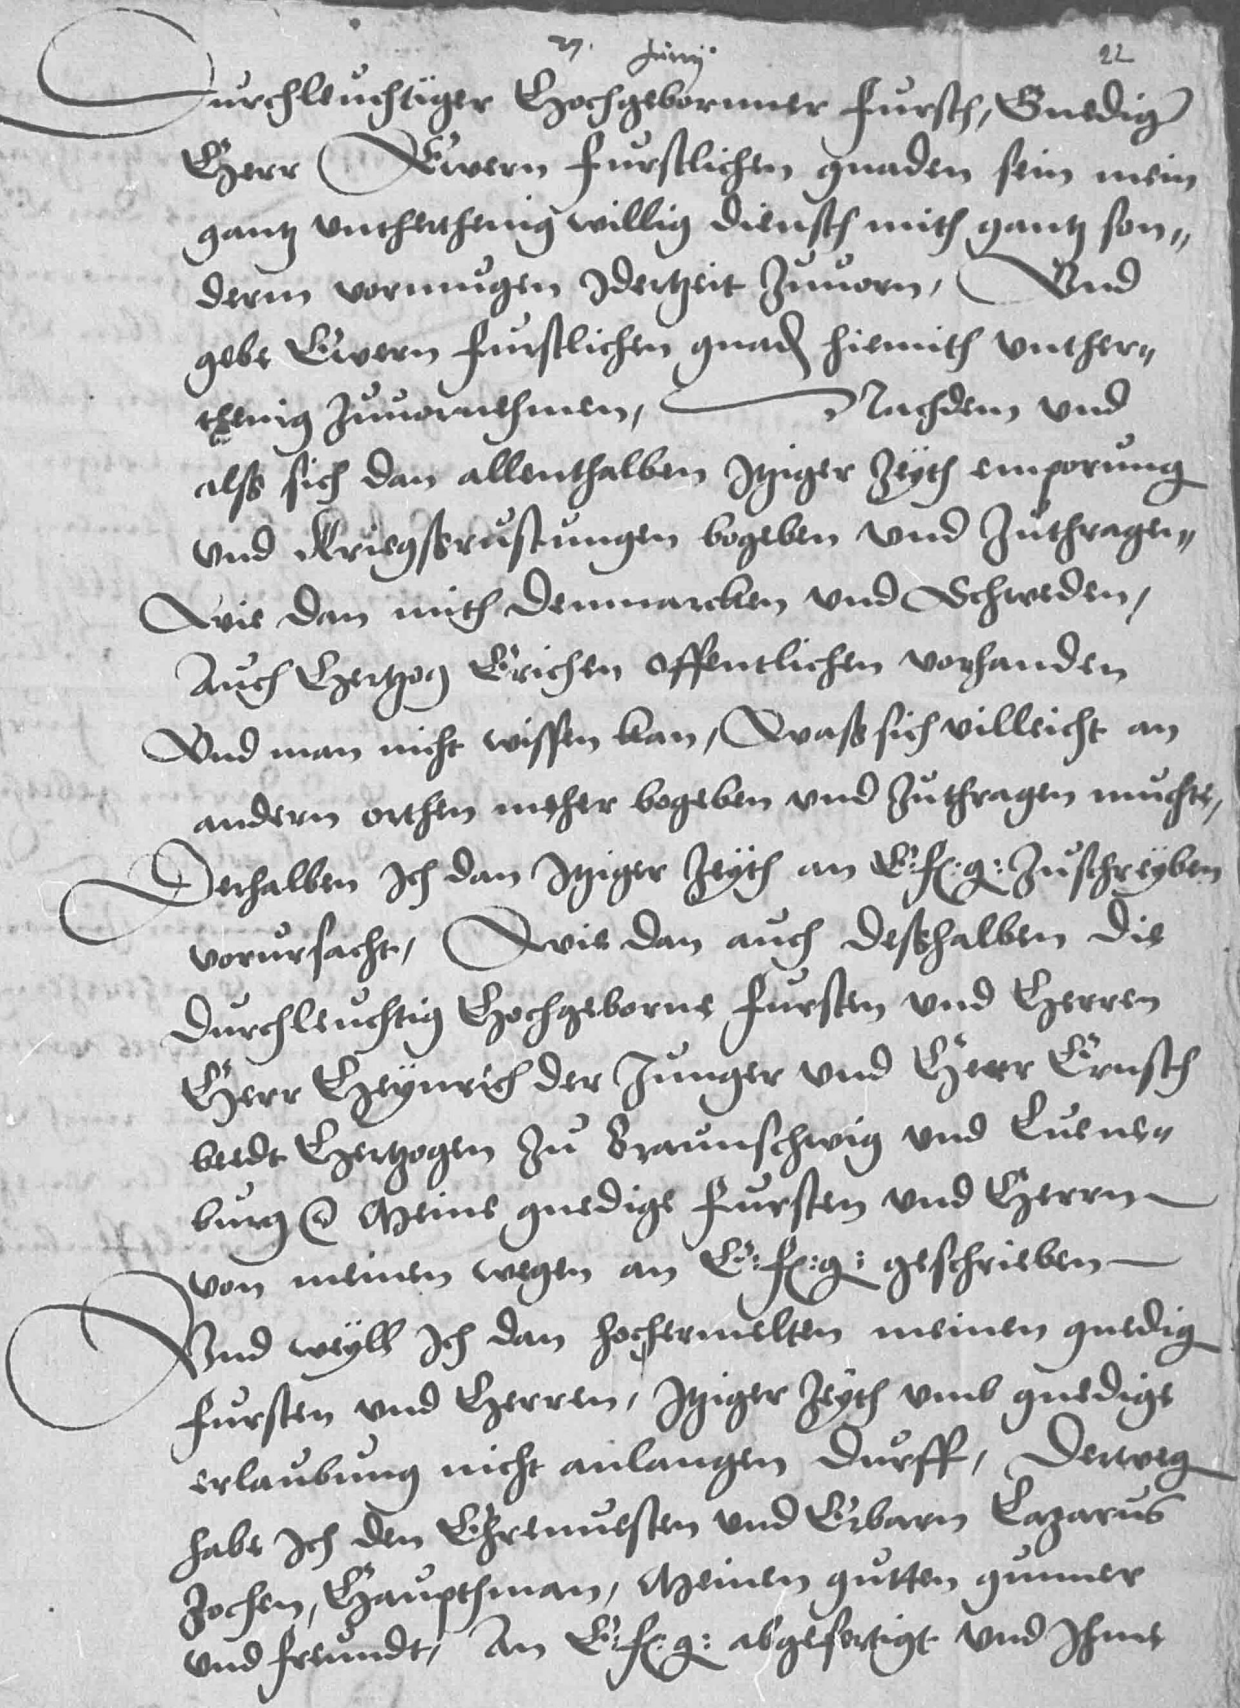 27. Junij. 22
Durchleuchtiger Hochgebornner furst, Gnedig
Herr Ewern furstlichen gnaden sein mein
gantz vntherthenig willig dienst mith gantz son„
derm vormugen Idertzeit zuuorn, Vnd
gebe Ewern furstlichen gnad hiemith vnther„
thenig zuuornehmen, Nachdem vnd
alß sich dan allenthalben Itziger zeyth emporung
vnd Kriegßrustungen bogeben vnd zuthragen„
Wie dan mith Denmarcken vnd Schweden,
Auch Hertzog Erichen offentlichen vorhanden
Vnd man nicht wissen kan, Waß sich villeicht an
andern orthen meher bogeben vnd zuthragen muchte,
Derhalben Ich dan Itziger zeyth an E: f: g: zuschreyben
vorursacht, Wie dan auch deßhalben die
Durchleuchtig Hochgeborne fursten vnd Herren
Herr Heynrich der Junger vnd Herr Ernsth
beedt Hertzogen zu Braunschwig vnd Luene„
burg Meine gnedige fursten vnd Herrn
von meinen wegen an E: f: g: geschrieben
Vnd weyll Ich dan hochermelten meinen gnedig
fursten vnd Herren, Itziger zeyth vmb gnedige
erlaubung nicht anlangen durff, Derweg
habe Ich den Ehrnuesten vnd Erbarn Lazarus
Zochen, Haupthman, Meinen gutten gunner
vnd freundt, An E: f: g: abgefertigt vnd Ihme